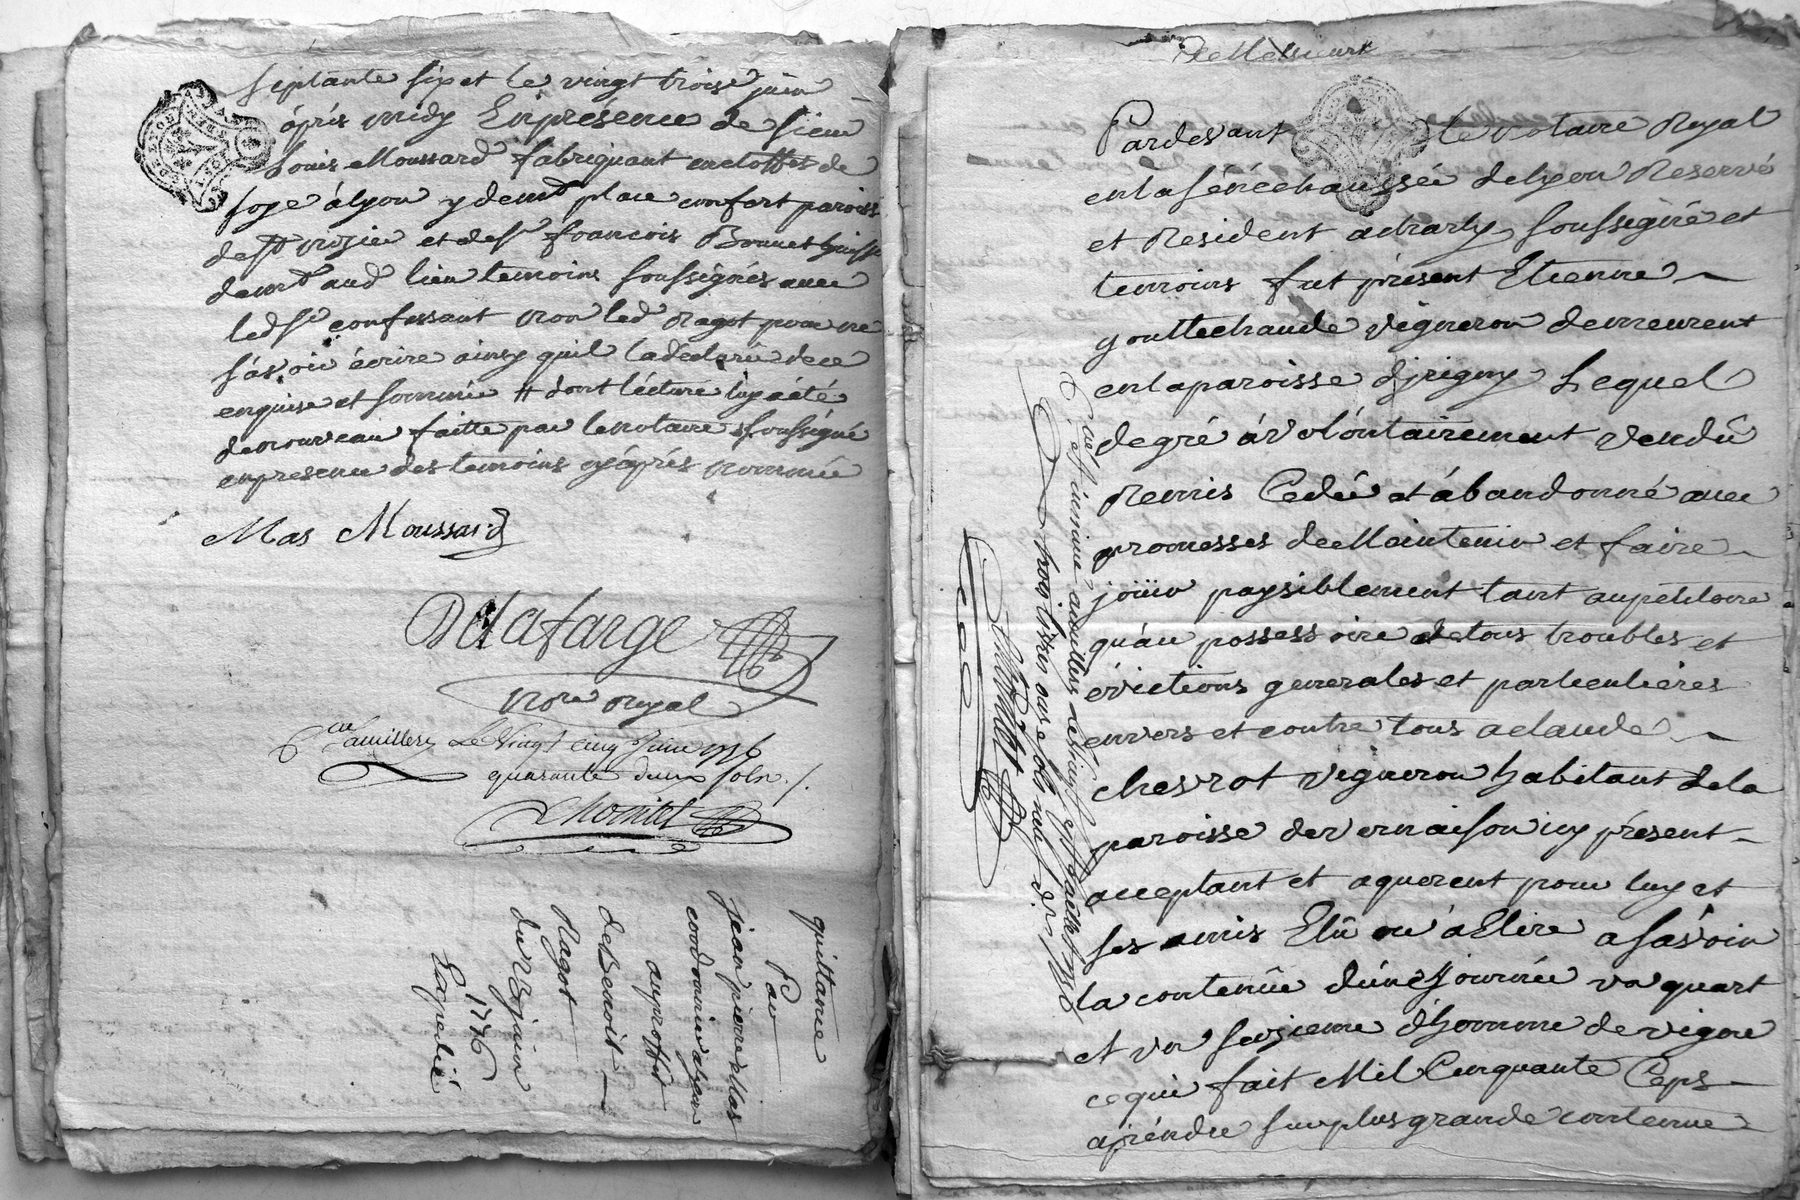 septante six et le vingt trois juin
après midy Enprésence de sieur
Louis Moussard fabriquant enetoffes de
soye àlyon y demt place confort paroisse
de st nizier et de sr françois Bonnet huissier
demt aud lieu temoins soussignés avec
led sr confessant non led Ragot pour ne
sàvoir écrire ainsy quil ladeclaré dece
enquise et sommé # dont lécture luy àété
denouveau faitte par lenotaire soussigné
enpresence des temoins cyàprés nommés
Mas Moussard
Delafarge
nore royal
Cllé amillery Le Vingt cinq Juin 1776
quarante deux sols ./.
Chomtet
quittance
Par
jean pierre Mas
cordonnier alyon
auproffit
deBenoit
Ragot
du 23 juin
1776
Expedié
DeMessieurs
Pardevant le notaire Royal
enlasénéchaussée delyon Reservé
et Resident acharly soussigné et
temoins fut présent Etienne
gouttechaude vigneron demeurent
enlaparoisse djrigny Lequel
degré àvolontairement vendû
Remis Cedé et àbandonné avec
promesses deMaintenir et faire
joüir paysiblement tant aupétitoire
quàu possessoire detous troubles et
évictions generales et particulières
envers et contre tous aclaude
chevrot vigneron habitant dela
paroisse devernaison icy présent
acceptant et aquerent pour luy et
ses amis Elû ou àElire asàvoir
la contenûe dúne journée un quart
et un seizieme dhomme de vigne
cequi fait Mil Cinquante Ceps
aprendre surplusgrande contenue
Cllé et insinué amillery Le vingt sept juillet 1776
trois livres onze sols neuf d.
Chomtet